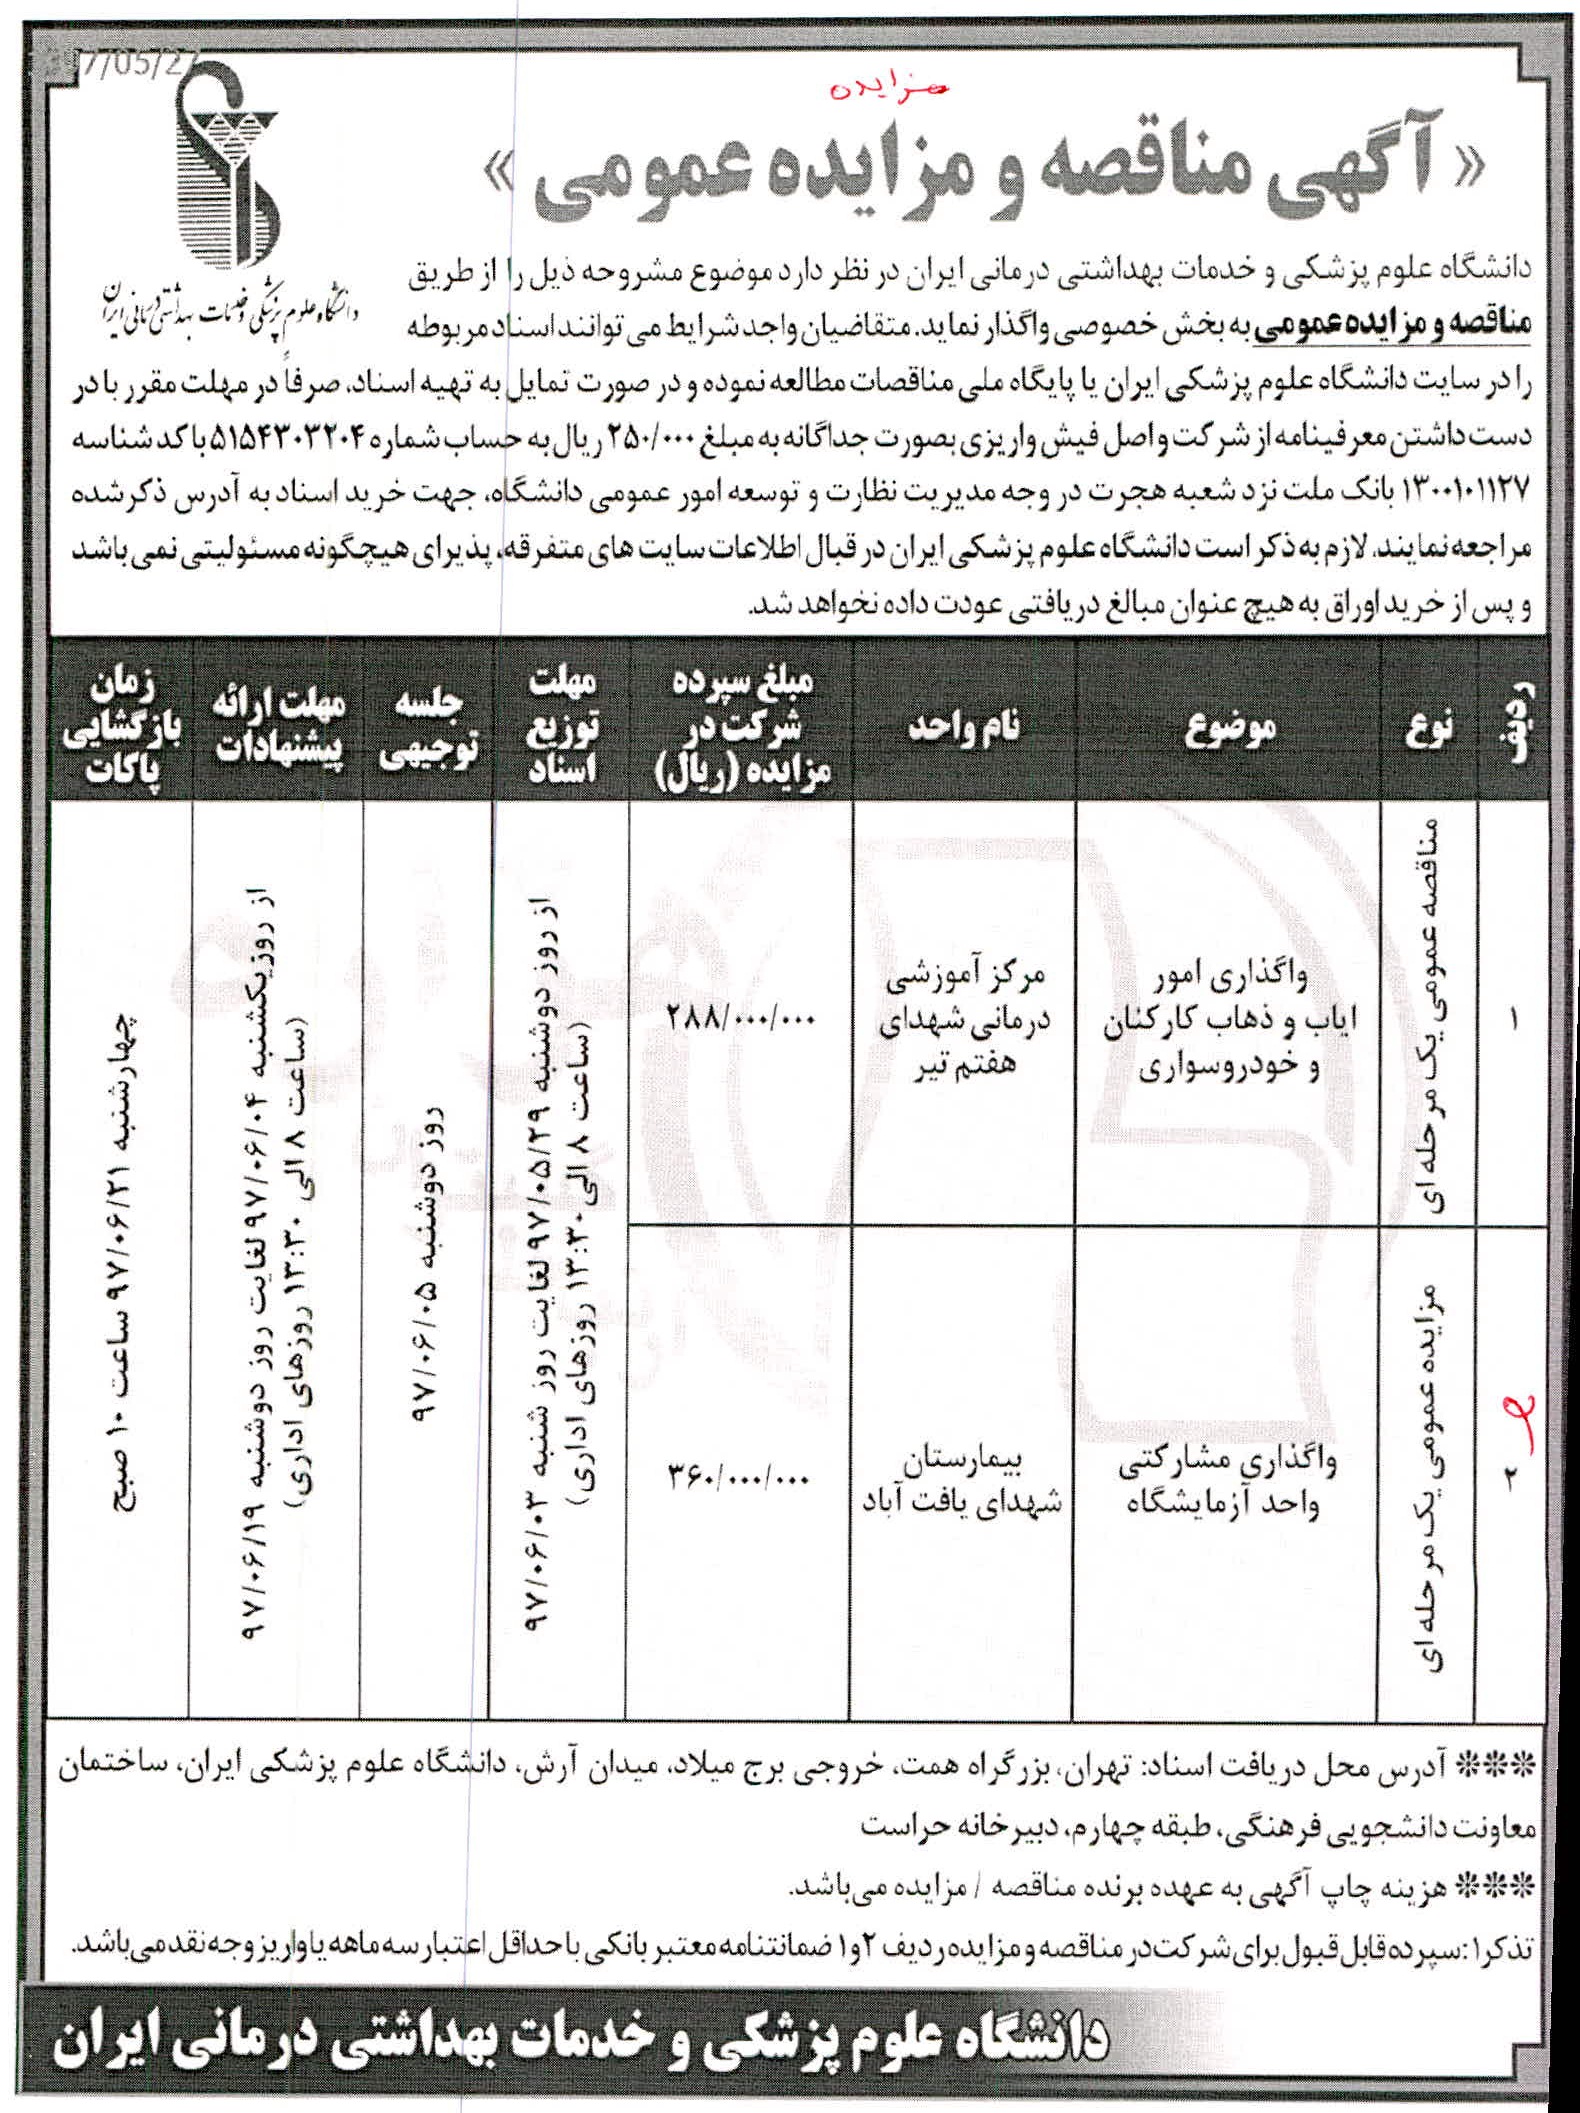 7/05/27
مزایده
« آگهی مناقصه و مزایده عمومی »
دانشگاه علوم پزشکی و خدمات بهداشتی درمانی ایران
دانشگاه علوم پزشکی و خدمات بهداشتی درمانی ایران در نظر دارد موضوع مشروحه ذیل را از طریق
مناقصه و مزایده عمومی به بخش خصوصی واگذار نماید. متقاضیان واجد شرایط می توانند اسناد مربوطه
را در سایت دانشگاه علوم پزشکی ایران یا پایگاه ملی مناقصات مطالعه نموده و در صورت تمایل به تهیه اسناد، صرفاً در مهلت مقرر با در
دست داشتن معرفینامه از شرکت و اصل فیش واریزی بصورت جداگانه به مبلغ ۲۵۰/۰۰۰ ریال به حساب شماره ۵۱۵۴۳۰۳۲۰۴ با کد شناسه
۱۳۰۰۱۰۱۱۲۷ بانک ملت نزد شعبه هجرت در وجه مدیریت نظارت و توسعه امور عمومی دانشگاه، جهت خرید اسناد به آدرس ذکر شده
مراجعه نمایند. لازم به ذکر است دانشگاه علوم پزشکی ایران در قبال اطلاعات سایت های متفرقه، پذیرای هیچگونه مسئولیتی نمی باشد
و پس از خرید اوراق به هیچ عنوان مبالغ دریافتی عودت داده نخواهد شد.
ردیف
نوع
موضوع
نام واحد
مبلغ سپرده
شرکت در
مزایده (ریال)
مهلت
توزیع
اسناد
جلسه
توجیهی
مهلت ارائه
پیشنهادات
زمان
بازگشایی
پاکات
۱
مناقصه عمومی یک مرحله ای
واگذاری امور
ایاب و ذهاب کارکنان
و خودروسواری
مرکز آموزشی
درمانی شهدای
هفتم تیر
۲۸۸/۰۰۰/۰۰۰
از روز دوشنبه ۹۷/۰۵/۲۹ لغایت روز شنبه ۹۷/۰۶/۰۳
(ساعت ۸ الی ۱۳:۳۰ روزهای اداری)
روز دوشنبه ۹۷/۰۶/۰۵
از روز یکشنبه ۹۷/۰۶/۰۴ لغایت روز دوشنبه ۹۷/۰۶/۱۹
(ساعت ۸ الی ۱۳:۳۰ روزهای اداری)
چهارشنبه ۹۷/۰۶/۲۱ ساعت ۱۰ صبح
۲
مزایده عمومی یک مرحله ای
واگذاری مشارکتی
واحد آزمایشگاه
بیمارستان
شهدای یافت آباد
۳۶۰/۰۰۰/۰۰۰
*** آدرس محل دریافت اسناد: تهران، بزرگراه همت، خروجی برج میلاد، میدان آرش، دانشگاه علوم پزشکی ایران، ساختمان
معاونت دانشجویی فرهنگی، طبقه چهارم، دبیرخانه حراست
*** هزینه چاپ آگهی به عهده برنده مناقصه / مزایده می‌باشد.
تذکر۱: سپرده قابل قبول برای شرکت در مناقصه و مزایده ردیف ۲و۱ ضمانتنامه معتبر بانکی با حداقل اعتبار سه ماهه یا واریز وجه نقد می باشد.
دانشگاه علوم پزشکی و خدمات بهداشتی درمانی ایران